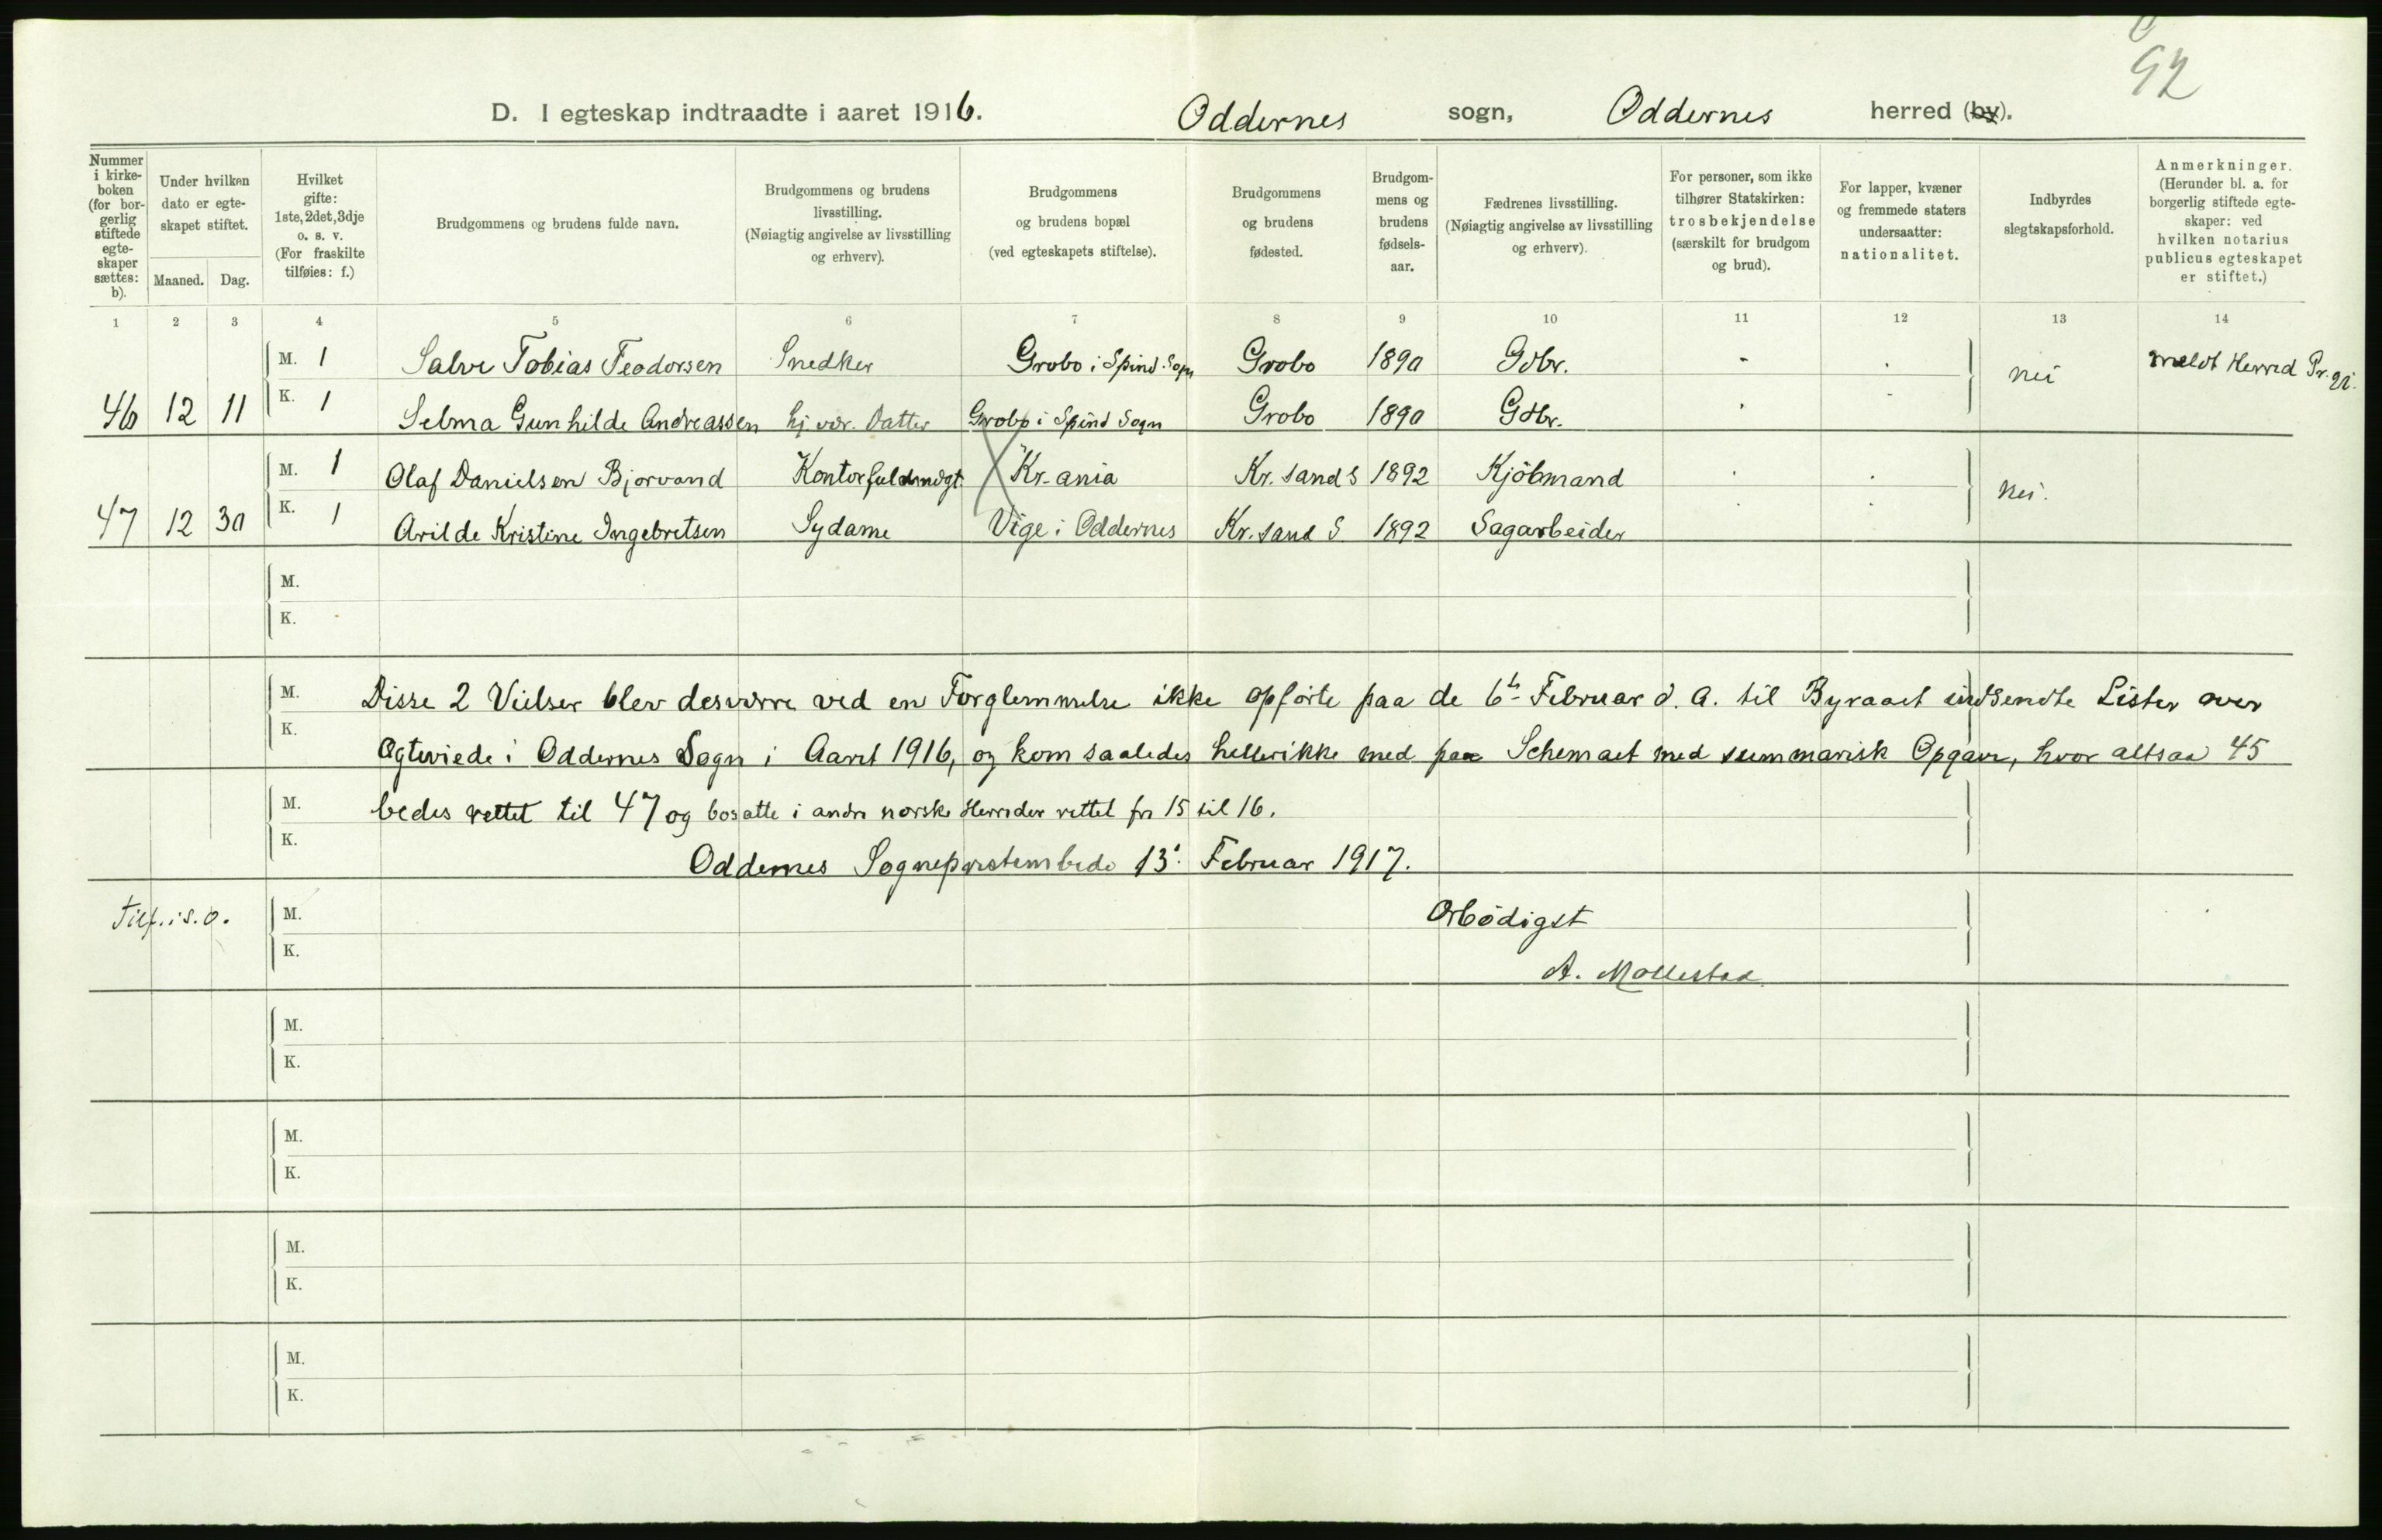 92
D. I egteskap indtraadte i aaret 1916. Oddernes sogn, Oddernes herred (by).
Nummer i kirkeboken (for borgerlig stiftede egteskaper sættes: b).
Under hvilken dato er egteskapet stiftet.
Maaned. Dag.
Hvilket gifte: 1ste, 2det, 3dje o. s. v. (For fraskilte tilføies: f.)
Brudgommens og brudens fulde navn.
Brudgommens og brudens livsstilling. (Nøiagtig angivelse av livsstilling og erhverv).
Brudgommens og brudens bopæl (ved egteskapets stiftelse).
Brudgommens og brudens fødested.
Brudgommens og brudens fødselsaar.
Fædrenes livsstilling. (Nøiagtig angivelse av livsstilling og erhverv).
For personer, som ikke tilhører Statskirken: trosbekjendelse (særskilt for brudgom og brud).
For lapper, kvæner og fremmede staters undersaatter: nationalitet.
Indbyrdes slegtskapsforhold.
Anmerkninger. (Herunder bl. a. for borgerlig stiftede egteskaper: ved hvilken notarius publicus egteskapet er stiftet.)
1 2 3 4 5 6 7 8 9 10 11 12 13 14
M. 1 Salve Tobias Teodorsen Snedker Grobo i Spind Sogn Grobo 1890 Gdbr. - . nei meldt Herred Pr.
46 12 11 K. 1 Selma Gunhilde Andreassen hj. vær. Datter Grobo i Spind Sogn Grobo 1890 Gdbr. . -
M. 1 Olaf Danielsen Bjorvand Kontorfuldmægt. Kr.ania Kr.sand S 1892 Kjöbmand . . nei.
47 12 30 K. 1 Arilde Kristine Ingebretsen Sydame Vige i Oddernes Kr.sand S 1892 Sagarbeider . .
M.
K.
M. Disse 2 Vielser blev desværre ved en Forglemmelse ikke opförte paa de 6te Februar d. A. til Byraaet indsendte Lister over
K. Ægteviede i Oddernes Sogn i Aaret 1916, og kom saaledes hellerikke med paa Schemaet med summarisk Opgave, hvor altsaa 45
M. bedes rettet til 47 og bosatte i andre norske Herreder rettet fra 15 til 16.
K. Oddernes Sogneprestembede 13. Februar 1917.
Tilf. i S. O. M. Ærbödigst
K. A. Mollestad.
M.
K.
M.
K.
M.
K.
M.
K.